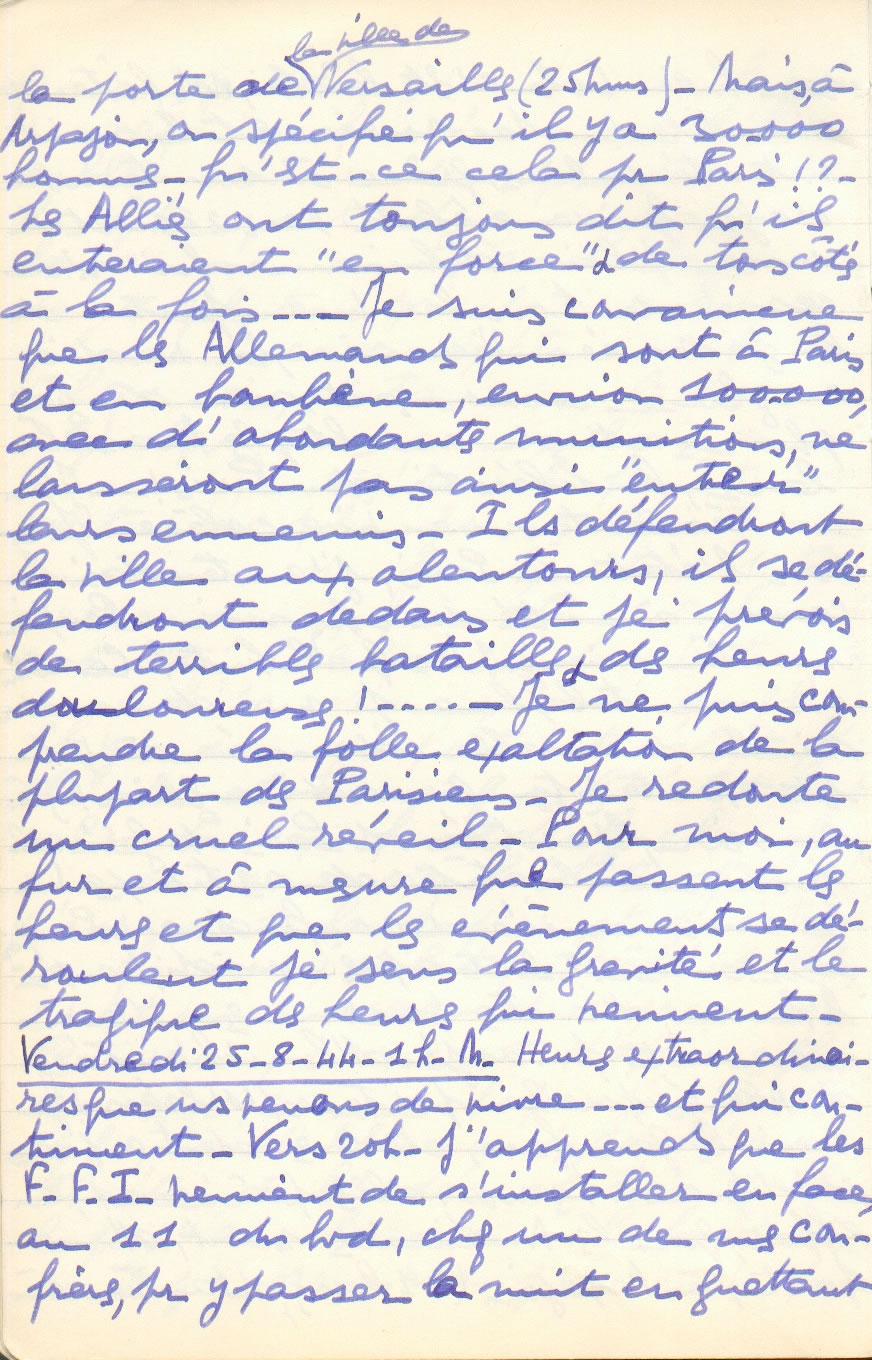 la ville de
la porte de Versailles (25 hms) - Mais, à
Arpajon, on spécifie qu'il y a 30.000
hommes - qu'est-ce cela pr Paris !? -
Les Alliés ont toujours dit qu'ils
entreraient "en force" & de tous côtés
à la fois --- Je suis convaincue
que les Allemands qui sont à Paris
et en banlieue, environ 100.000,
avec d'abondantes munitions, ne
laisseront pas ainsi "entrer"
leurs ennemis - Ils défendront
la ville aux alentours, ils se dé-
fendront dedans et je prévois
de terribles batailles & des heures
douloureuses ! ----- Je ne puis com-
prendre la folle exaltation de la
plupart des Parisiens - Je redoute
un cruel réveil - Pour moi, au
fur et à mesure que passent les
heures et que les évènements se dé-
roulent je sens la gravité et le
tragique des heures qui viennent -
Vendredi 25-8-44-1h-M- Heures extraordinai-
res que ns venons de vivre --- et qui con-
tinuent - Vers 20h - j'apprends que les
F.F.I. viennent de s'installer en face,
au 11 du bvd, chez un de mes con-
frères, pr y passer la nuit en guettant